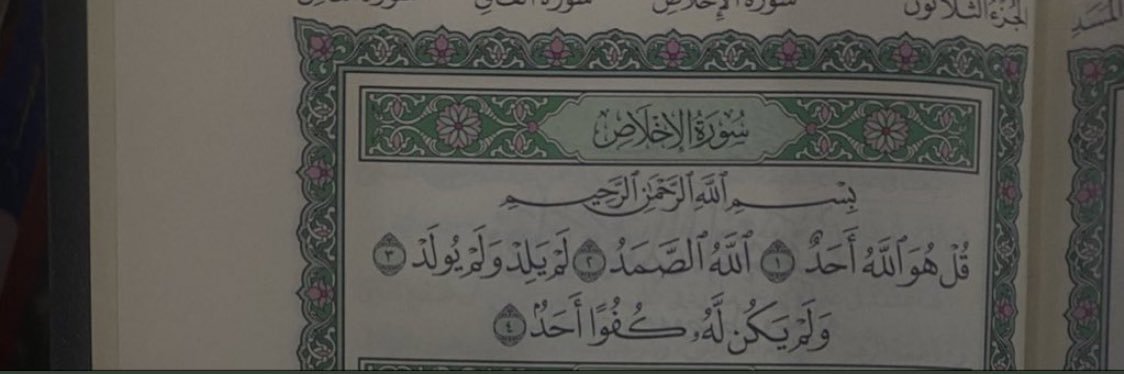 الجزء الثلاثون
سورة الإخلاص
سُورَةُ الإِخْلَاصِ
بِسْمِ ٱللَّهِ ٱلرَّحْمَٰنِ ٱلرَّحِيمِ
قُلْ هُوَ ٱللَّهُ أَحَدٌ ١ ٱللَّهُ ٱلصَّمَدُ ٢ لَمْ يَلِدْ وَلَمْ يُولَدْ ٣
وَلَمْ يَكُن لَّهُۥ كُفُوًا أَحَدٌۢ ٤